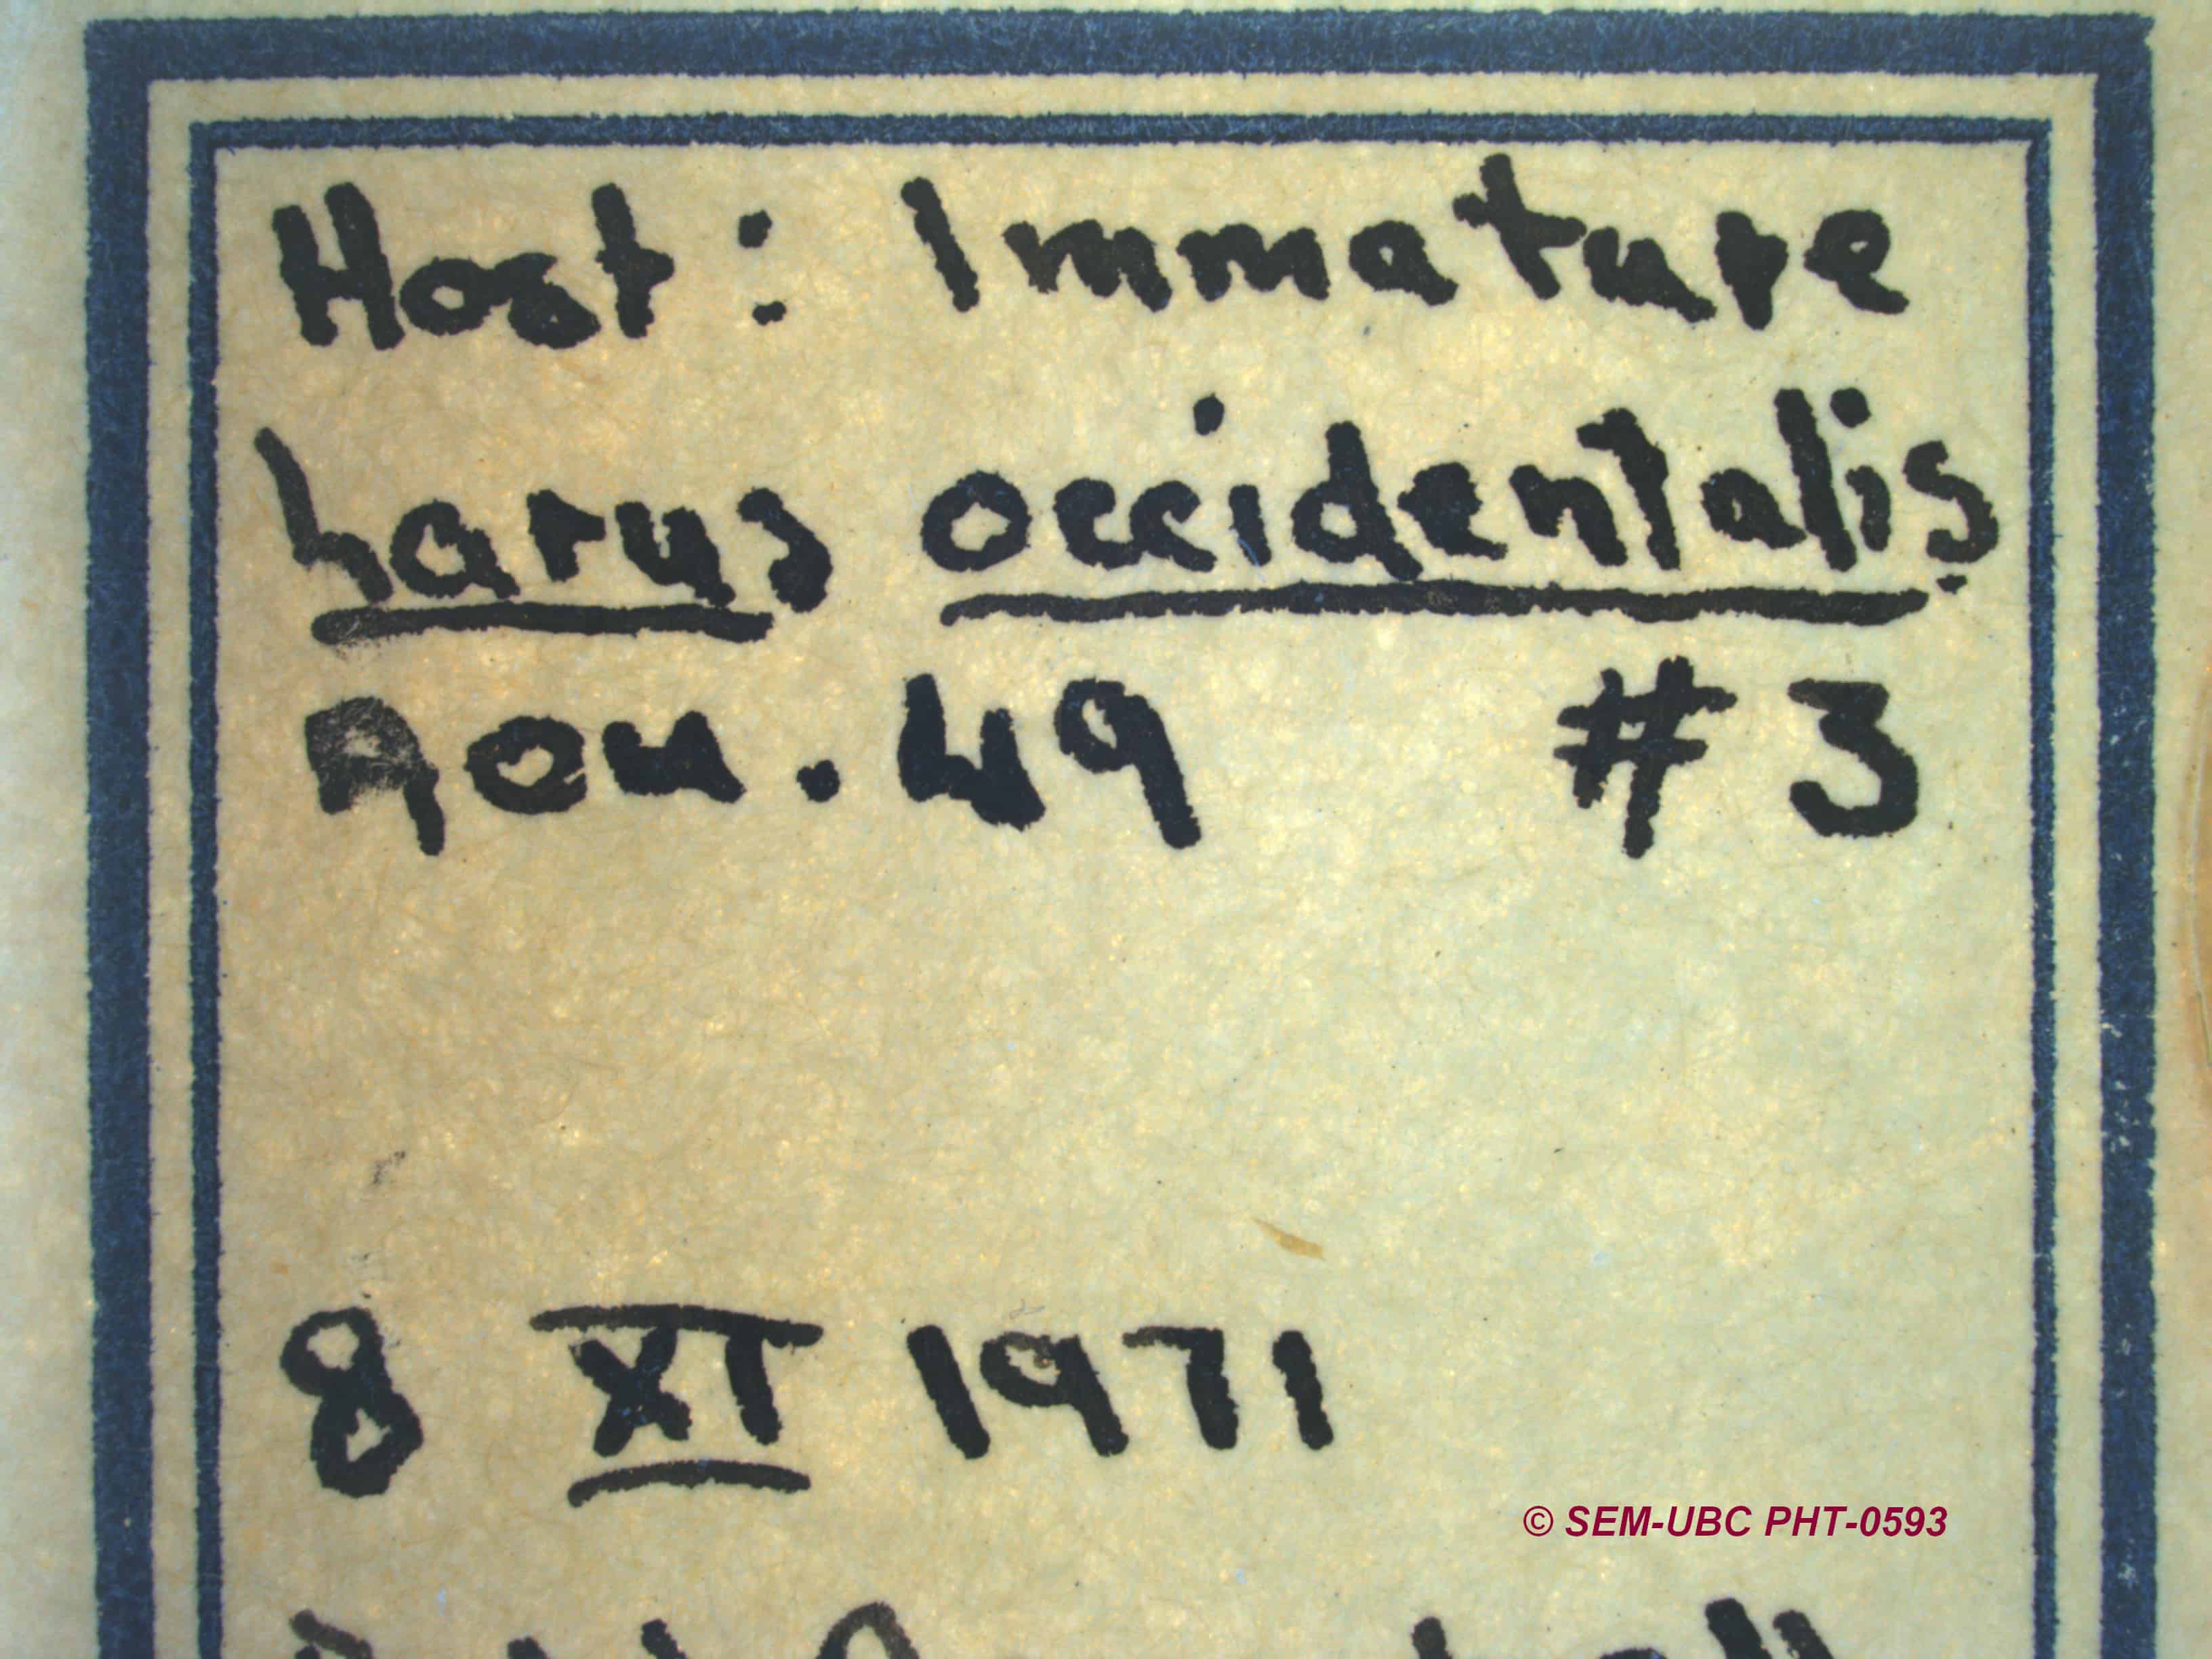 Host: Immature
Larus occidentalis
Rou. 49 #3
8 XI 1971
© SEM-UBC PHT-0593